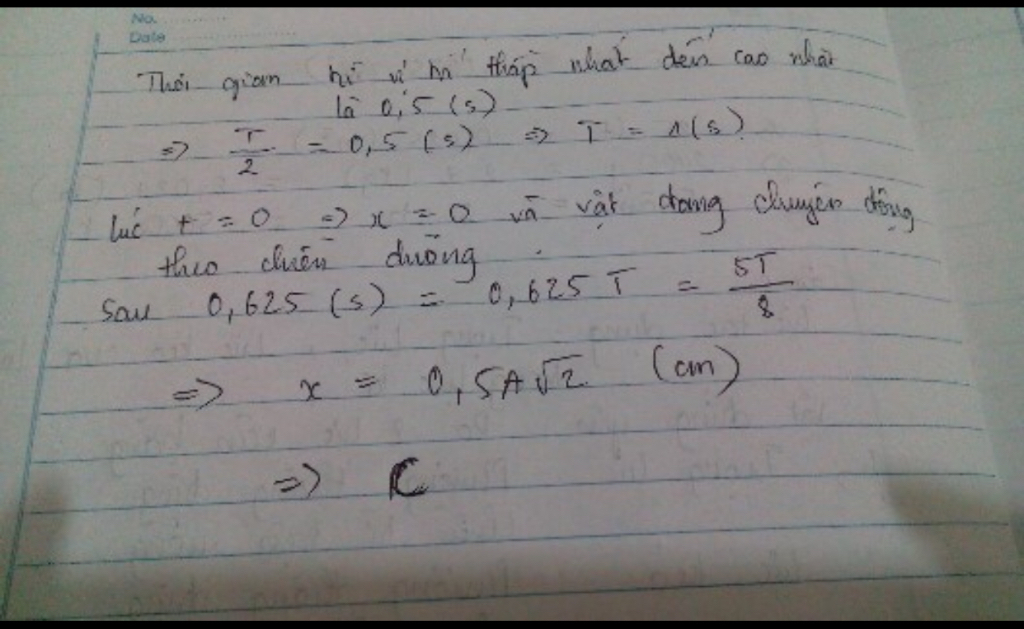 No.
Date
Thời gian từ vị trí thấp nhất đến cao nhất
là 0,5 (s)
=> T/2 = 0,5 (s) => T = 1 (s)
lúc t = 0 => x = 0 và vật đang chuyển động
theo chiều dương
Sau 0,625 (s) = 0,625 T = 5T/8
=> x = 0,5A√2 (cm)
=> C